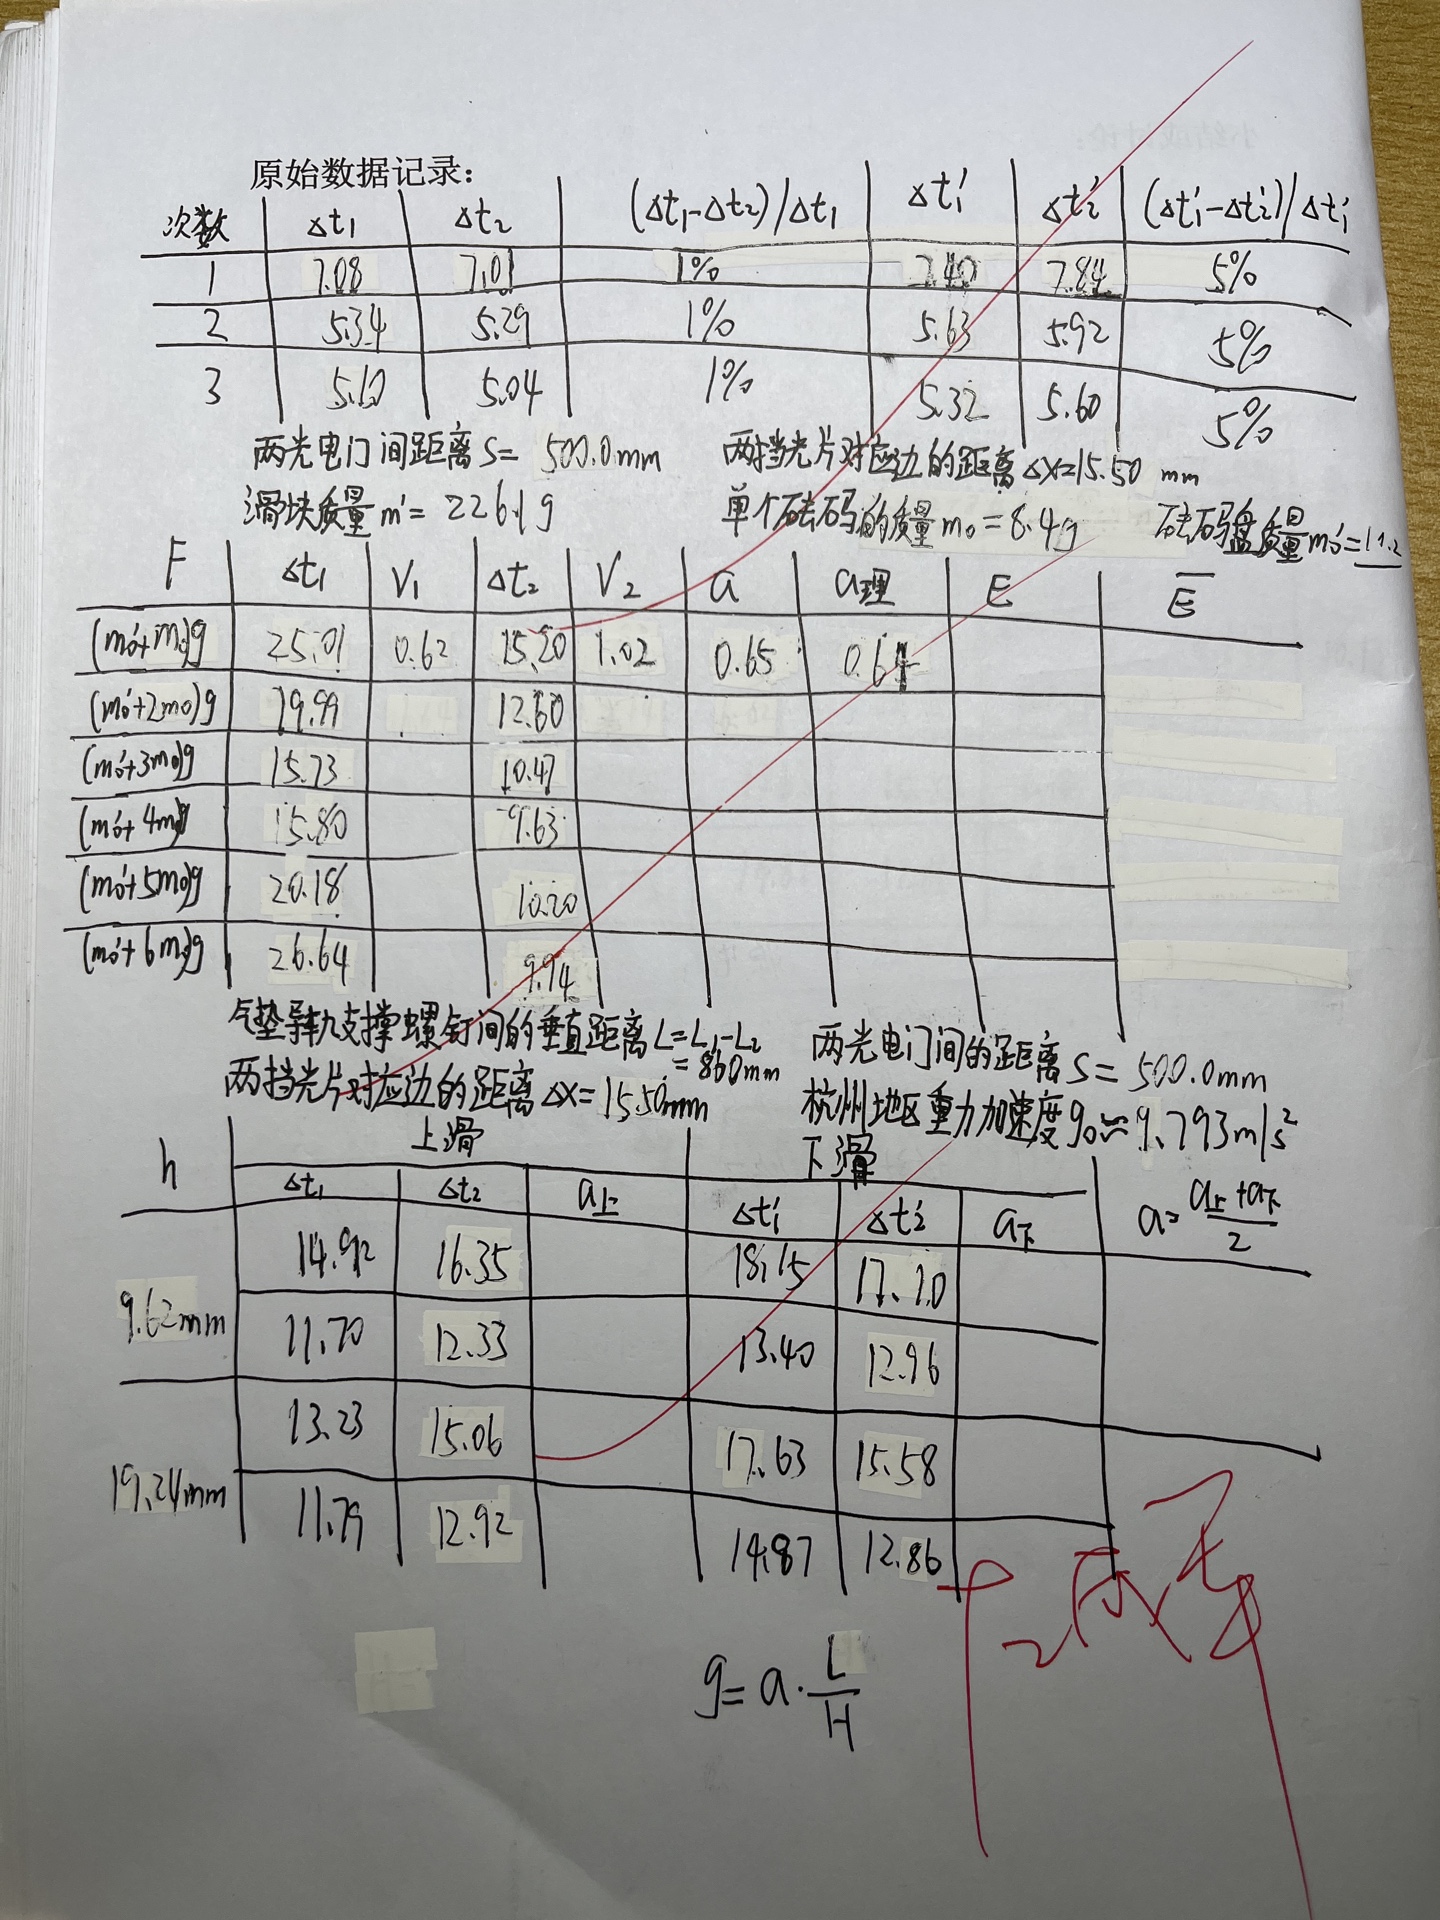 原始数据记录：
次数 Δt₁ Δt₂ (Δt₁-Δt₂)/Δt₁ Δt₁' Δt₂' (Δt₁'-Δt₂')/Δt₁'
1 7.08 7.01 1% 7.40 7.84 5%
2 5.34 5.29 1% 5.63 5.92 5%
3 5.10 5.04 1% 5.32 5.60 5%
两光电门间距离S= 500.0mm 两挡光片对应边的距离Δx=15.50 mm
滑块质量m'=226.1g 单个砝码的质量m₀=8.4g 砝码盘质量m₀'=11.2
F Δt₁ V₁ Δt₂ V₂ a a理 E E̅
(m₀'+m₀)g 25.01 0.62 15.20 1.02 0.65 0.64
(m₀'+2m₀)g 19.99 12.60
(m₀'+3m₀)g 15.73 10.47
(m₀'+4m₀)g 15.80 9.63
(m₀'+5m₀)g 20.18 10.20
(m₀'+6m₀)g 26.64 9.94
气垫导轨支撑螺钉间的垂直距离L=L₁-L₂
=860mm
两光电门间的距离S=500.0mm
两挡光片对应边的距离Δx=15.50mm
杭州地区重力加速度g₀≈9.793m/s²
h 上滑 下滑
Δt₁ Δt₂ a上 Δt₁' Δt₂' a下 a=(a上+a下)/2
9.62mm 14.92 16.35 18.15 17.10
11.70 12.33 13.40 12.96
19.24mm 13.23 15.06 17.63 15.58
11.79 12.92 14.87 12.86
g=a·L/H